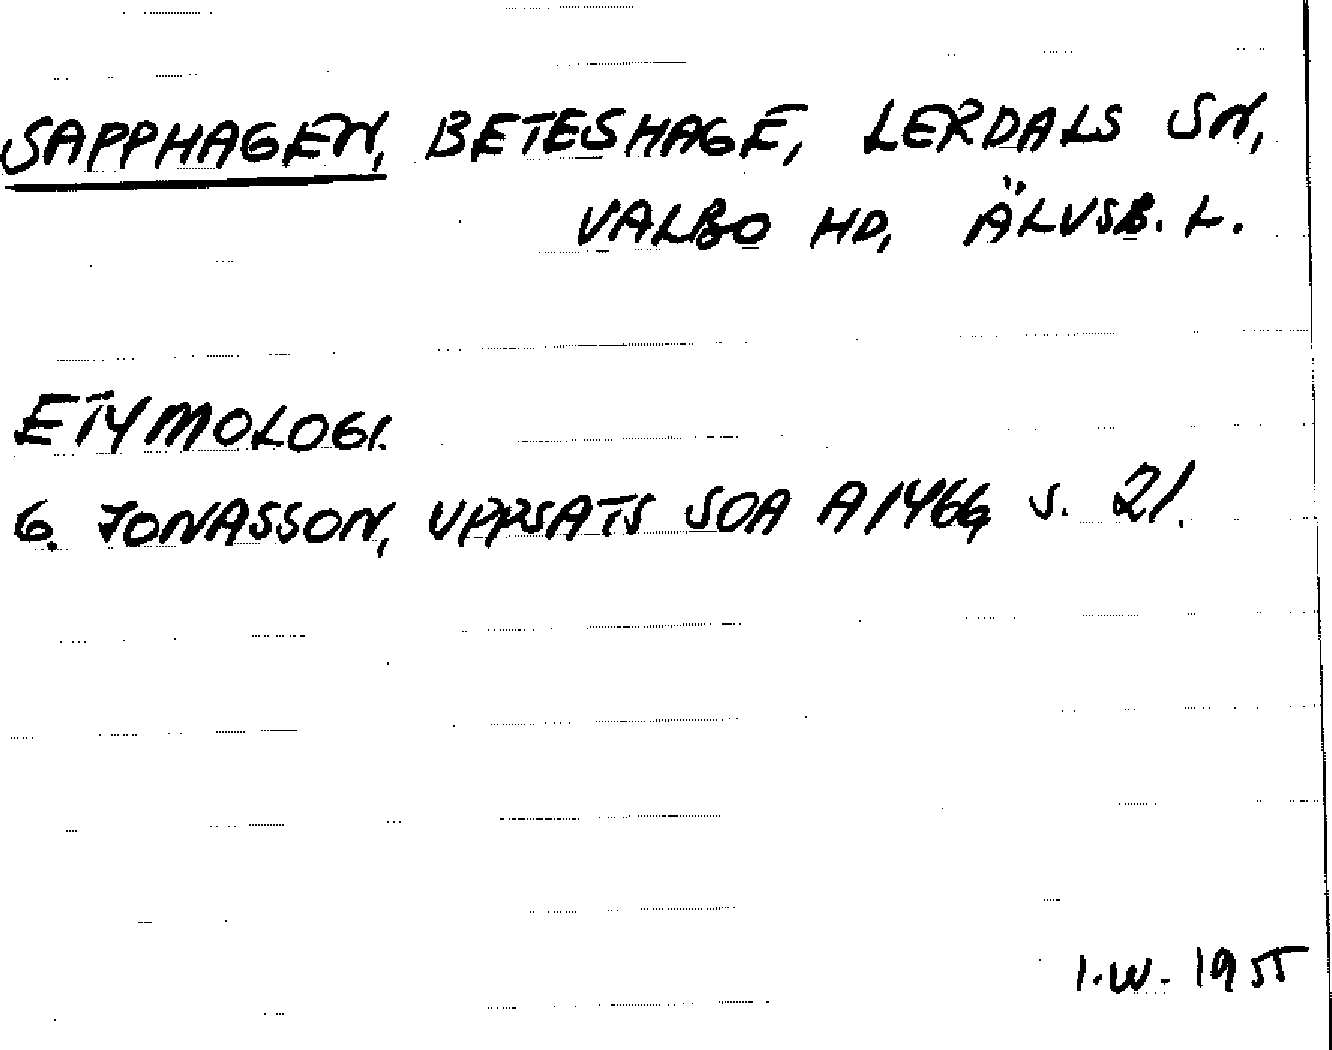 SAPPHAGEN, BETESHAGE, LERDALS SN,
VALBO HD, ÄLVSB. L.
ETYMOLOGI.
G. JONASSON, UPPSATS SOA A1466, S. 21.
I.W. 1955